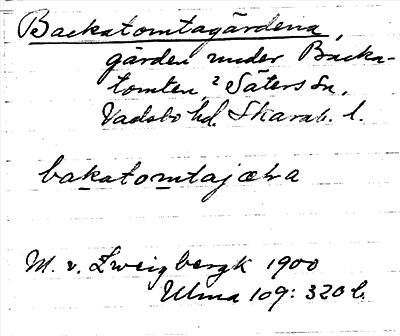 Backatomtagärdena,
gärden under Backa-
tomten, 2 Säters sn,
Vadsbo hd. Skarab. l.
bakatomtajæra
M. v. Zweigbergk 1900
Ulma 109: 320 b.